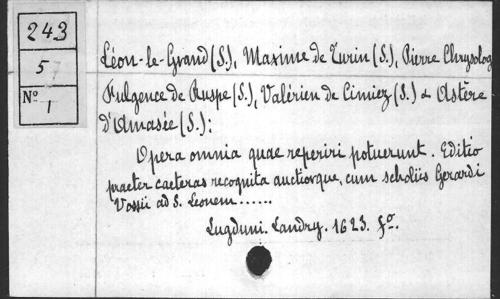 243
5
Nº
1
Léon-le-Grand (S.), Maxime de Turin (S.), Pierre Chrysolog
Fulgence de Ruspe (S.), Valérien de Cimiez (S.) & Astère
d'Amasée (S.):
Opera omnia quae reperiri potuerunt. Editio
praeter caeteras recognita auctiorque, cum scholiis Gerardi
Vossii ad S. Leonem......
Lugduni. Landry. 1623. fo.